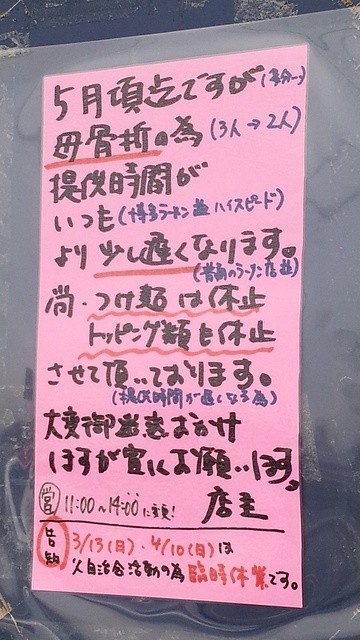 5月頃迄ですが(多分…)
母骨折の為(3人→2人)
提供時間が
いつも(博多ラーメン並ハイスピード)
より少し遅くなります。
(普通のラーメン店並)
尚・つけ麺は休止
トッピング類も休止
させて頂いております。
(提供時間が遅くなる為)
大変御迷惑おかけ
しますが宜しくお願いします。
営 11:00〜14:00に変更! 店主
告知 3/13(日)・4/10(日)は
父自治会活動の為臨時休業です。